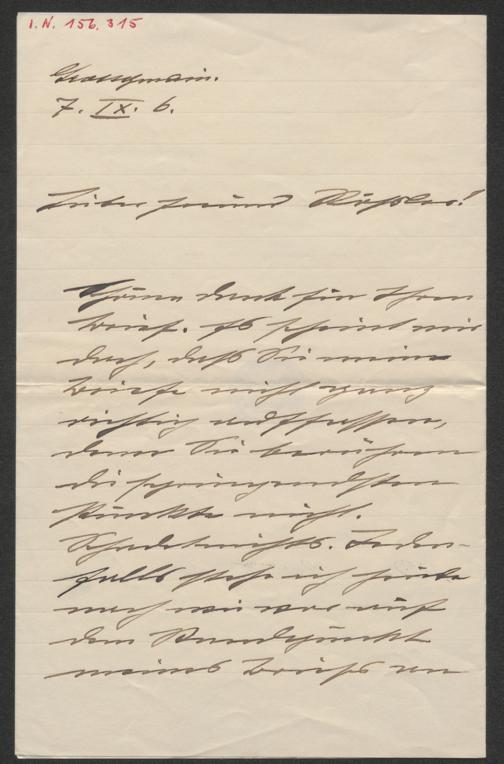 I.N. 156.315
Grossgmain.
7. IX. 6.
Lieber Freund Rössler!
Schönen Dank für Ihren
Brief. Es scheint mir
doch, daß Sie meine
Briefe nicht ganz
richtig auffassen,
denn Sie berühren
die springendsten
Punkte nicht.
Schadet nichts. Jeden-
falls stehe ich heute
noch wie vor auf
dem Standpunkt
meines Briefs an